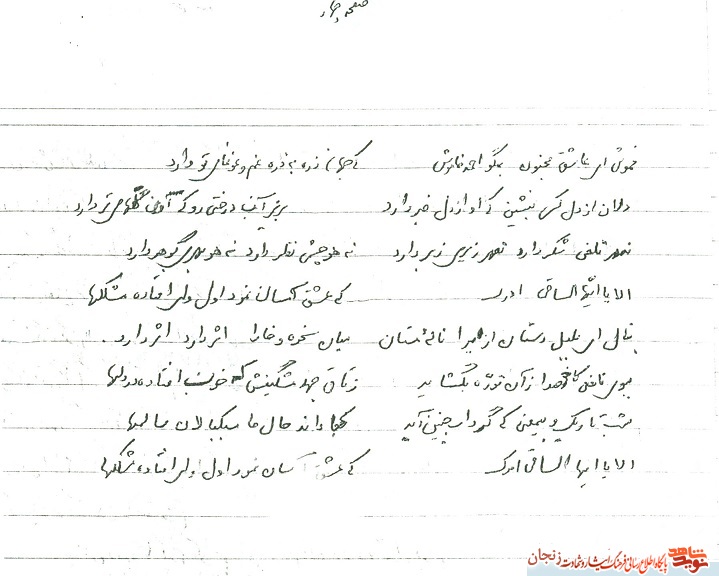 صفحه چهار
خموش ای عاشق مجنون بگو احمد خاموش که جهان ذره به ذره غم و غوغای تو دارد
دلا نزد کسی بنشین که او از دل خبر دارد بزیر آن درختی رو که او گلهای تر دارد
نه هر کلکی شکر دارد نه هر زیری زبر دارد نه هر چشمی نظر دارد نه هر بحری گوهر دارد
الا یا ایها الساقی ادرک که عشق آسان نمود اول ولی افتاده مشکلها
بنالی ای بلبل دستان ازیرا ناله مستان میان صخره و خارا اثر دارد اثر دارد
ببوی نافه کاخر صبا زان طره بگشاید ز تاب جعد مشگینش که خون افتاده در دلها
شب تاریک و بیم که گردابی چنین آید کجا داند حال ما سبکبالان ساحلها
الا یا ایها الساقی ادرک که عشق آسان نمود اول ولی افتاده مشکلها
نوید شاهد
پایگاه اطلاع رسانی فرهنگ ایثار و شهادت زنجان